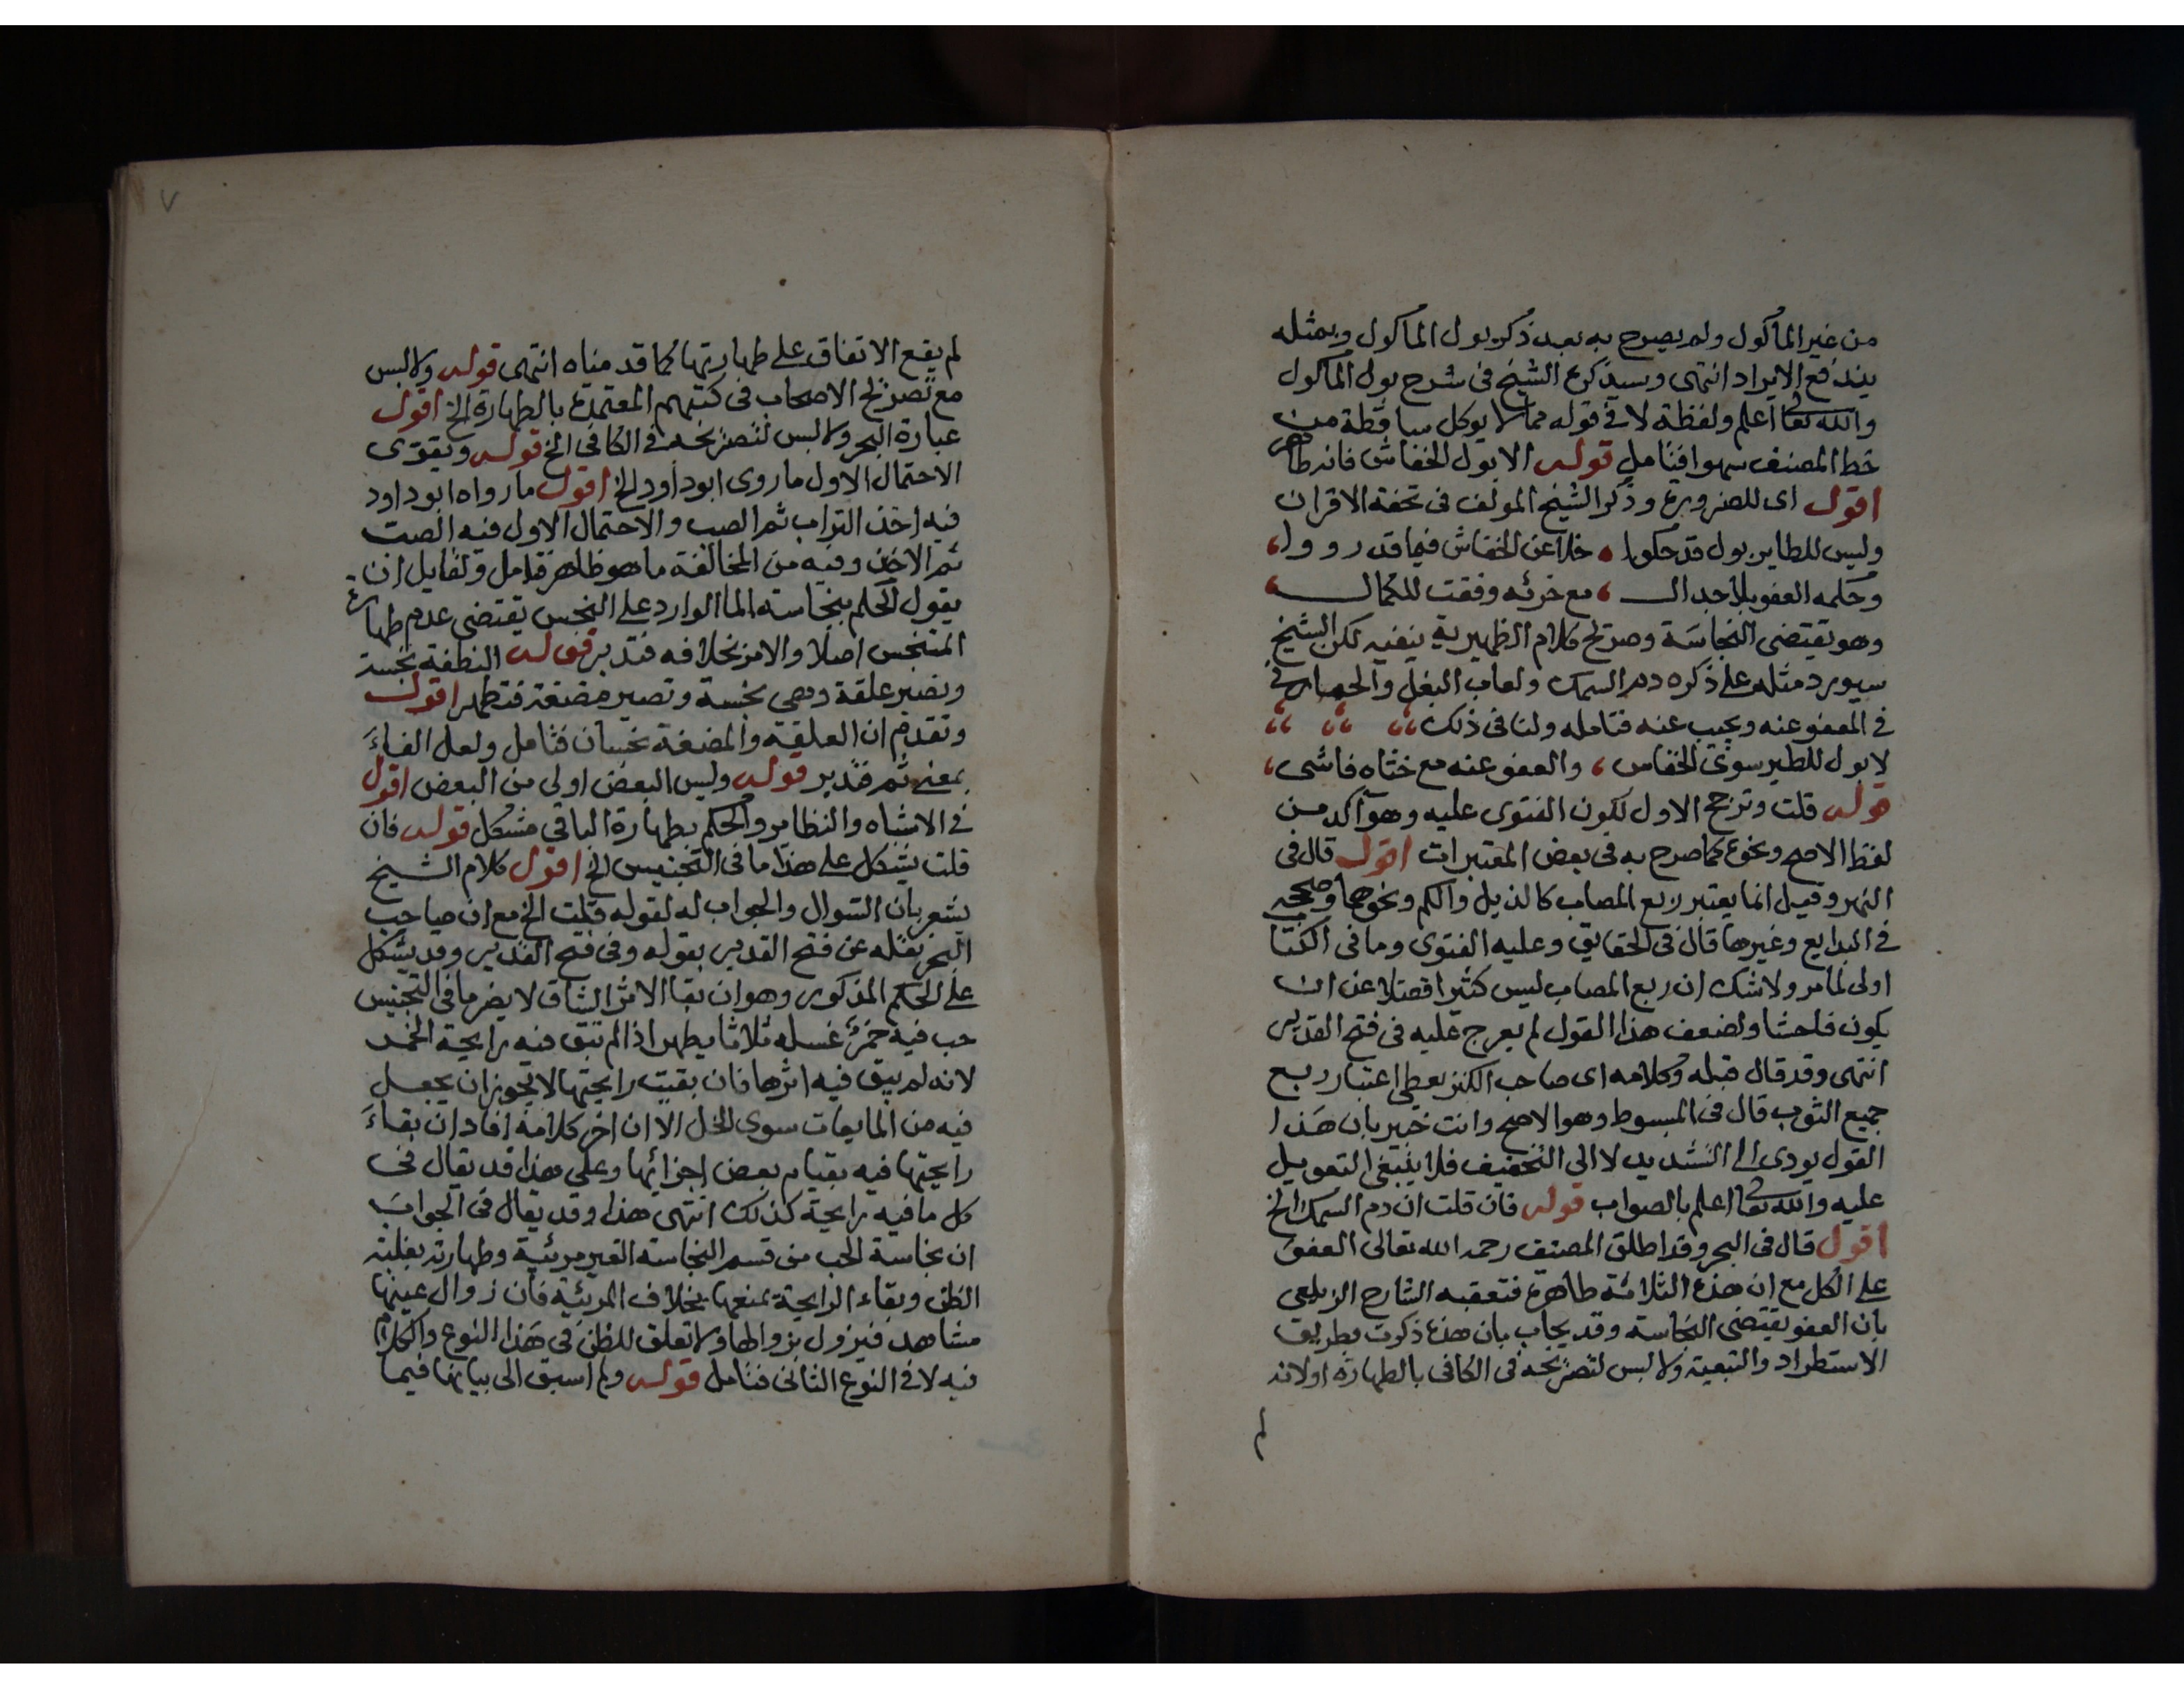 من غير المأكول ولم يصرح به بعد ذكر بول المأكول وبمثله
يندفع الايراد انتهى وسيذكره الشيخ فى شرح بول المأكول
والله تعا اعلم ولفظة لا فى قوله مما لا يوكل ساقطة من
خط المصنف سهوا فتامل قوله الا بول الخفاش فانه طاهر
اقول اى للضرورة وذكر الشيخ المولف فى تحفة الاقران
وليس للطاير بول قد حكوا خلا عن الخفاش فيما قد رووا
وحكمه العفو بلا جدال مع خرئه وفقت للكمال
وهو يقتضى النجاسة وصريح كلام الظهيرية ينفيه لكن الشيخ
سيورد مثله على ذكره دم السمك ولعاب البغل والحمار فى
فى المعفو عنه ويجيب عنه فتامله ولنا فى ذلك
لا بول للطير سوى الخفاس والعفو عنه مع ختاه فاشى
قوله قلت وترجح الاول لكون الفتوى عليه وهو آكد من
لفظ الاصح ونحوه كما صرح به فى بعض المعتبرات اقول قال فى
النهر وقيل انما يعتبر ربع المصاب كالذيل والكم ونحوهما وصححه
فى البدايع وغيرها قال فى الحقايق وعليه الفتوى وما فى الكتا
اولى لما مر ولا شك ان ربع المصاب ليس كثيرا فضلا عن ان
يكون فاحشا ولضعف هذا القول لم يعرج عليه فى فتح القدير
انتهى وقد قال قبله وكلامه اى صاحب الكنز يعطى اعتبار ربع
جميع الثوب قال فى المبسوط وهو الاصح وانت خبير بان هذا
القول يودى الى التشديد لا الى التخفيف فلا ينبغى التعويل
عليه والله تعا اعلم بالصواب قوله فان قلت ان دم السمك الخ
اقول قال فى البحر وقد اطلق المصنف رحمه الله تعالى العفو
على الكل مع ان هذه الثلاثة طاهرة فتعقبه الشارح الزيلعى
بان العفو يقتضى النجاسة وقد يجاب بان هذه ذكرت بطريق
الاستطراد والتبعية ولا لبس لتصريحه فى الكافى بالطهارة اولانه
لم
٧
لم يقع الاتفاق على طهارتها كما قدمناه انتهى قوله ولا لبس
مع تصريح الاصحاب فى كتبهم المعتمدة بالطهارة الخ اقول
عبارة البحر ولا لبس لتصريحه فى الكافى الخ قوله ويقوى
الاحتمال الاول ما روى ابو داود الخ اقول ما رواه ابو داود
فيه اخذ التراب ثم الصب والاحتمال الاول فيه الصب
ثم الاخذ وفيه من المخالفة ما هو ظاهر فتامل ولقايل ان
يقول الحكم بنجاسة الما الوارد على النجس يقتضى عدم طهارة
المتنجس اصلا والامر بخلافه فتدبر قوله النطفة نجسة
وتصير علقة وهى نجسة وتصير مضغة فتطهر اقول
وتقدم ان العلقة والمضغة نجسان فتامل ولعل الفاءَ
بمعنى ثم فتدبر قوله وليس البعض اولى من البعض اقول
فى الاشباه والنظاير والحكم بطهارة الباقى مشكل قوله فان
قلت يشكل على هذا ما فى التجنيس الخ اقول كلام الشيخ
يشعر بان السوال والجواب له لقوله قلت الخ مع ان صاحب
البحر نقله عن فتح القدير بقوله وفى فتح القدير وقد يشكل
على الحكم المذكور وهو ان بقا الاثر الشاق لا يضر ما فى التجنيس
حب فيه خمر غسله ثلاثا يطهر اذا لم تبق فيه رايحة الخمر
لانه لم يبق فيه اثرها فان بقيت رايحتها لا يجوز ان يجعل
فيه من المايعات سوى الخل الا ان اخر كلامه افاد ان بقاءَ
رايحتها فيه بقيام بعض اجزائها وعلى هذا قد يقال فى
كل ما فيه رايحة كذلك انتهى هذا وقد يقال فى الجواب
ان نجاسة الحب من قسم النجاسة الغير مرئية وطهارته بغلبة
الظن وبقاء الرايحة يمنعها بخلاف المرئية فان زوال عينها
مشاهد فيزول بزوالها ولا تعلق للظن فى هذا النوع والكلام
فيه لا فى النوع الثانى فتامل قوله ولم اسبق الى بيانها فيما